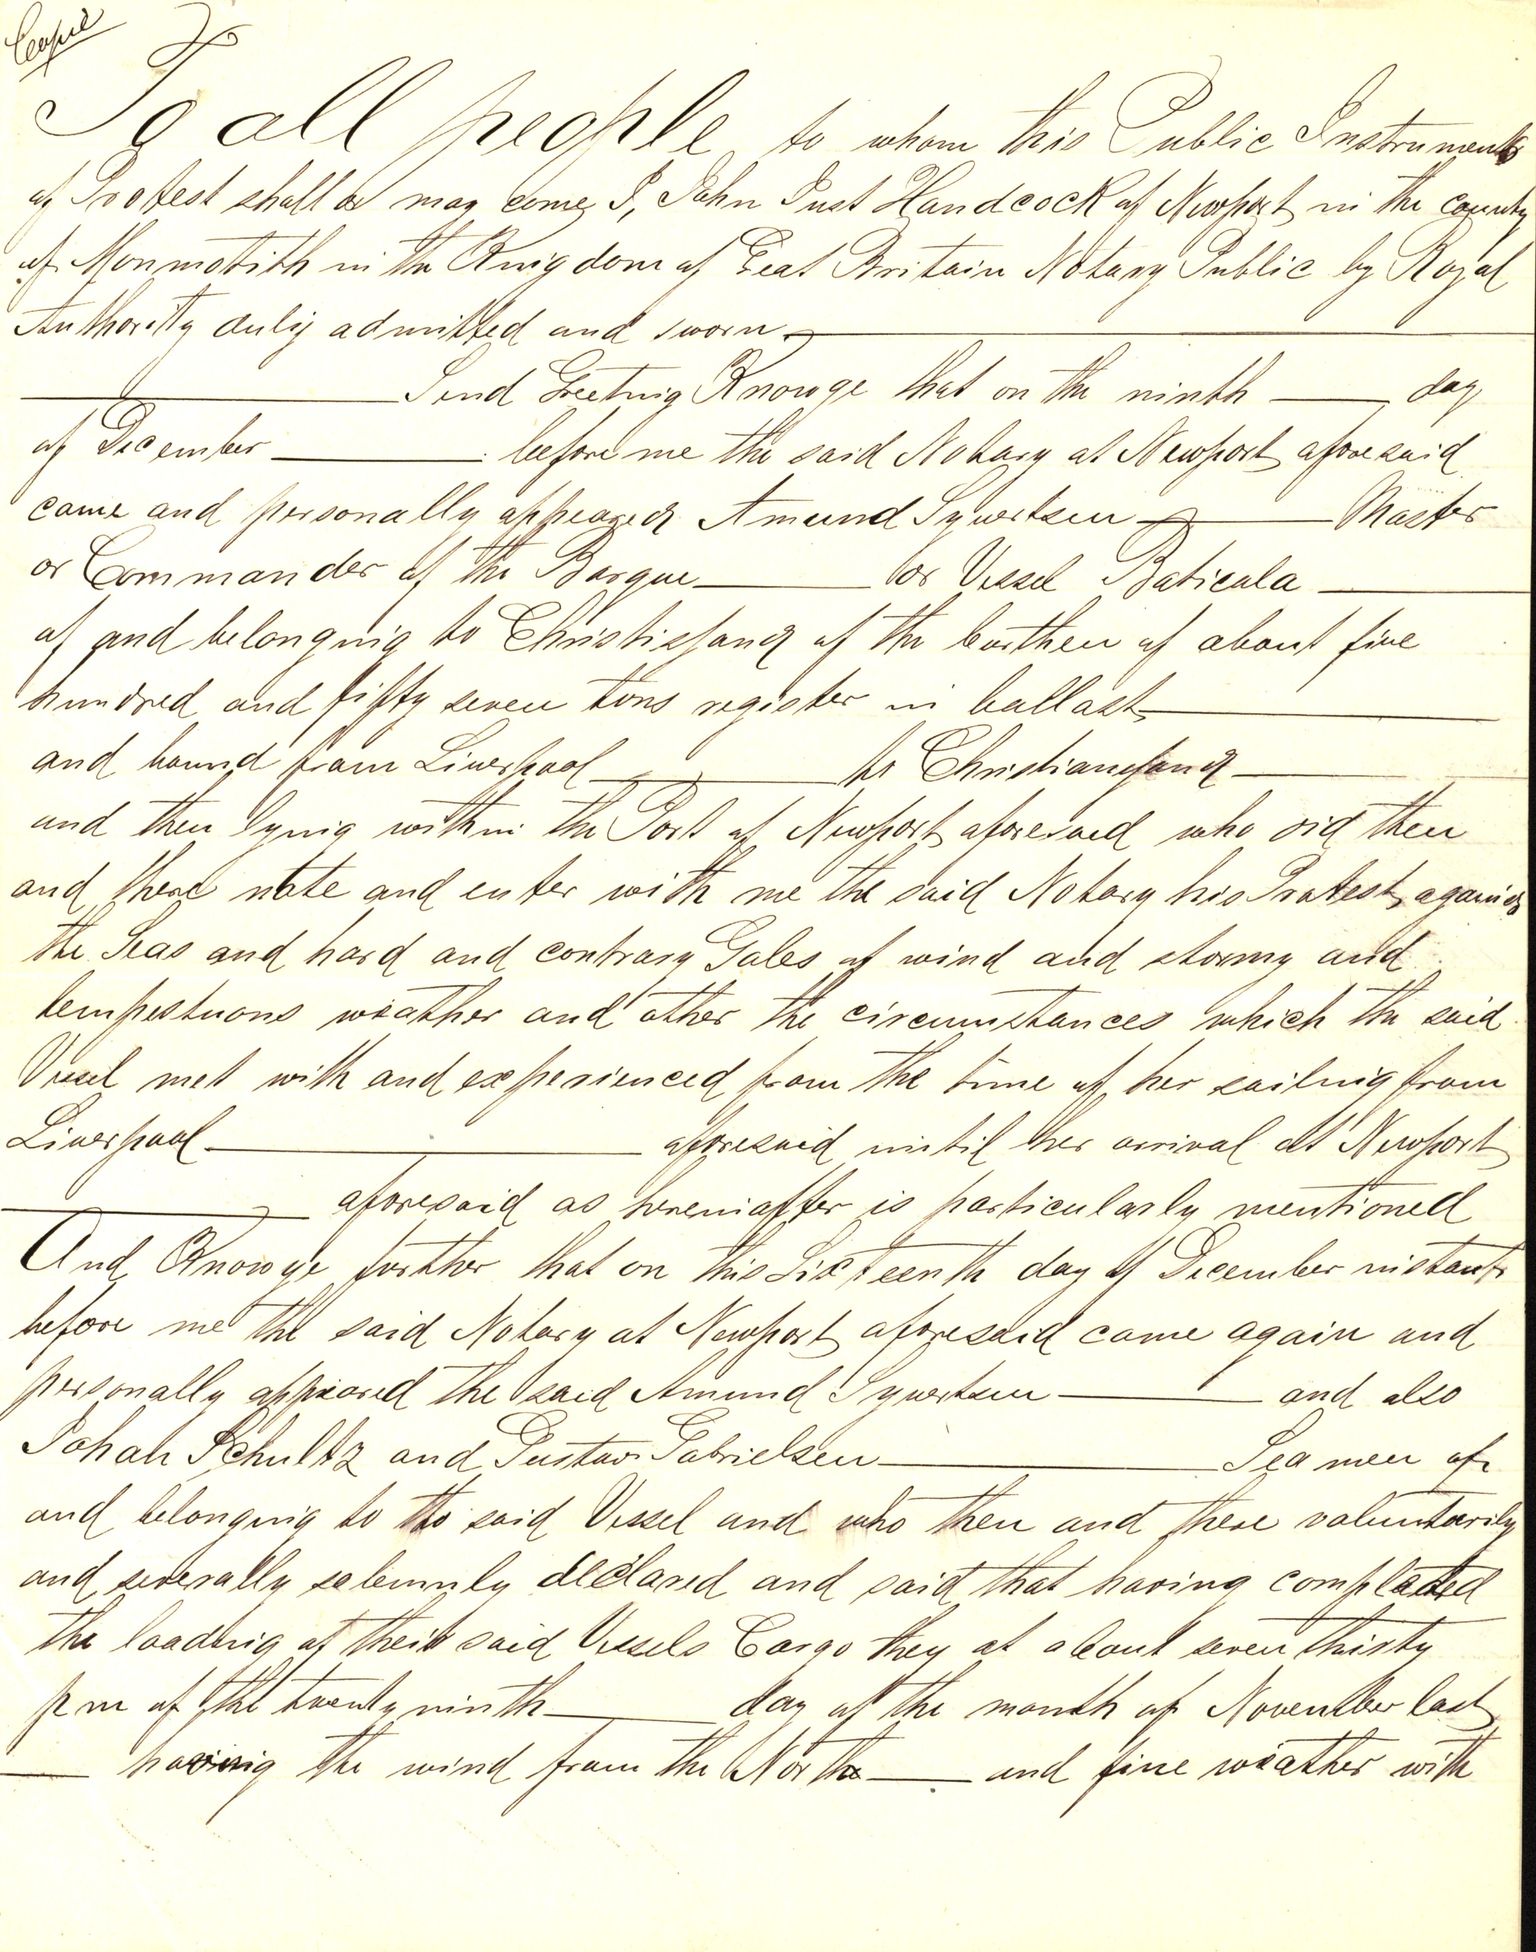 Copie
To all people to whom this Public Instrument
of Protest shall or may come, I, John Just Handcock of Newport in the county
of Monmotith in the Kingdom of Geat Britain Notary Public by Royal
Authority duly admitted and sworn.
Send Greeting Know ye that on the ninth day
of December before me the said Notary at Newport aforesaid
came and personally appeared Amund Sywertsen Master
or Commander of the Barque or Vessel Baticola
of and belonging to Christissand of the burthen of about five
hundred and fifty seven tons register in ballast
and bound from Liverpool to Christiansand
and then lying within the Port of Newport aforesaid who did then
and there note and enter with me the said Notary his Protest against
the Seas and hard and contrary Gales of wind and stormy and
tempestuous weather and other the circumstances which the said
Vessel met with and experienced from the time of her sailing from
Liverpool aforesaid until her arrival at Newport
aforesaid as hereinafter is particularly mentioned
And Know ye further that on this Sixteenth day of December instant
before me the said Notary at Newport aforesaid came again and
personally appeared the said Amund Sywertsen and also
Johan Schultz and Gustav Gabrielsen Seamen of
and belonging to the said Vessel and who then and there voluntarily
and severally solemnly declared and said that having completed
the loading of their said Vessels Cargo they at about seven thirty
pm of the twenty ninth day of the month of November last
having the wind from the North and fine weather with